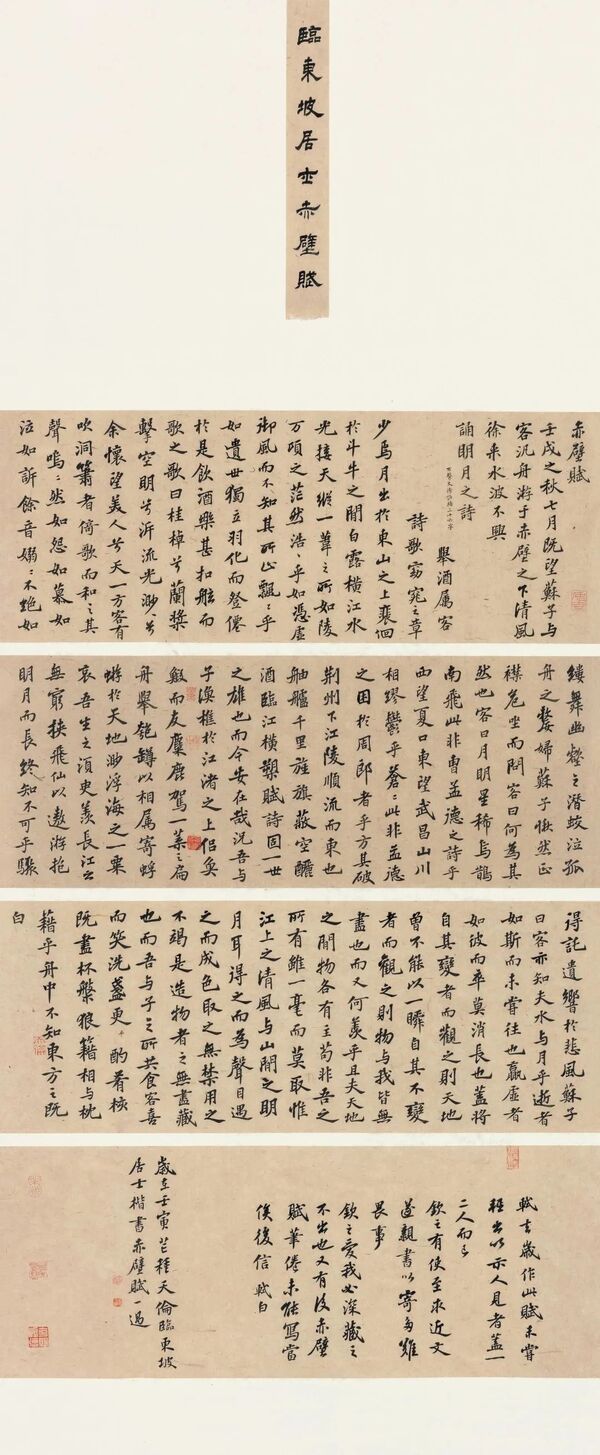 臨東坡居士赤壁賦
赤壁賦
壬戌之秋七月既望蘇子与
客汎舟游于赤壁之下清風
徐来水波不興
舉酒属客
誦明月之詩
詩歌窈窕之章
少焉月出於東山之上裵回
於斗牛之間白露橫江水
光接天縱一葦之所如陵
万頃之茫然浩〻乎如憑虛
御風而不知其所止飄〻乎
如遺世獨立羽化而登僊
於是飲酒樂甚扣舷而
歌之歌曰桂棹兮蘭槳
擊空明兮泝流光渺〻兮
余懷望美人兮天一方客有
吹洞簫者倚歌而和之其
聲嗚〻然如怨如慕如
泣如訴餘音嫋〻不絶如
縷舞幽壑之潛蛟泣孤
舟之嫠婦蘇子愀然正
襟危坐而問客曰何為其
然也客曰月明星稀烏鵲
南飛此非曹孟德之詩乎
西望夏口東望武昌山川
相繆鬱乎蒼〻此非孟德
之困於周郎者乎方其破
荆州下江陵順流而東也
舳艫千里旌旗蔽空釃
酒臨江橫槊賦詩固一世
之雄也而今安在哉況吾与
子漁樵於江渚之上侣魚
鰕而友麋鹿駕一葉之扁
舟舉匏罇以相属寄蜉
蝣於天地渺浮海之一粟
哀吾生之須臾羨長江之
無窮挾飛仙以遨游抱
明月而長終知不可乎驟
得託遺響於悲風蘇子
曰客亦知夫水与月乎逝者
如斯而未嘗往也贏虛者
如彼而卒莫消長也蓋將
自其變者而觀之則天地
曾不能以一瞬自其不變
者而觀之則物与我皆無
盡也而又何羨乎且夫天地
之間物各有主苟非吾之
所有雖一毫而莫取惟
江上之清風与山間之明
月耳得之而為聲目遇
之而成色取之無禁用之
不竭是造物者之無盡藏
也而吾与子之所共食客喜
而笑洗盞更酌肴核
既盡杯盤狼籍相与枕
藉乎舟中不知東方之既
白
軾去歲作此賦未嘗
輕出以示人見者蓋一
二人而已
欽之有使至求近文
遂親書以寄多難
畏事
欽之愛我必深藏之
不出也又有後赤壁
賦筆倦未能寫當
俟後信 軾白
歲在壬寅芒種天倫臨東坡
居士楷書赤壁賦一過